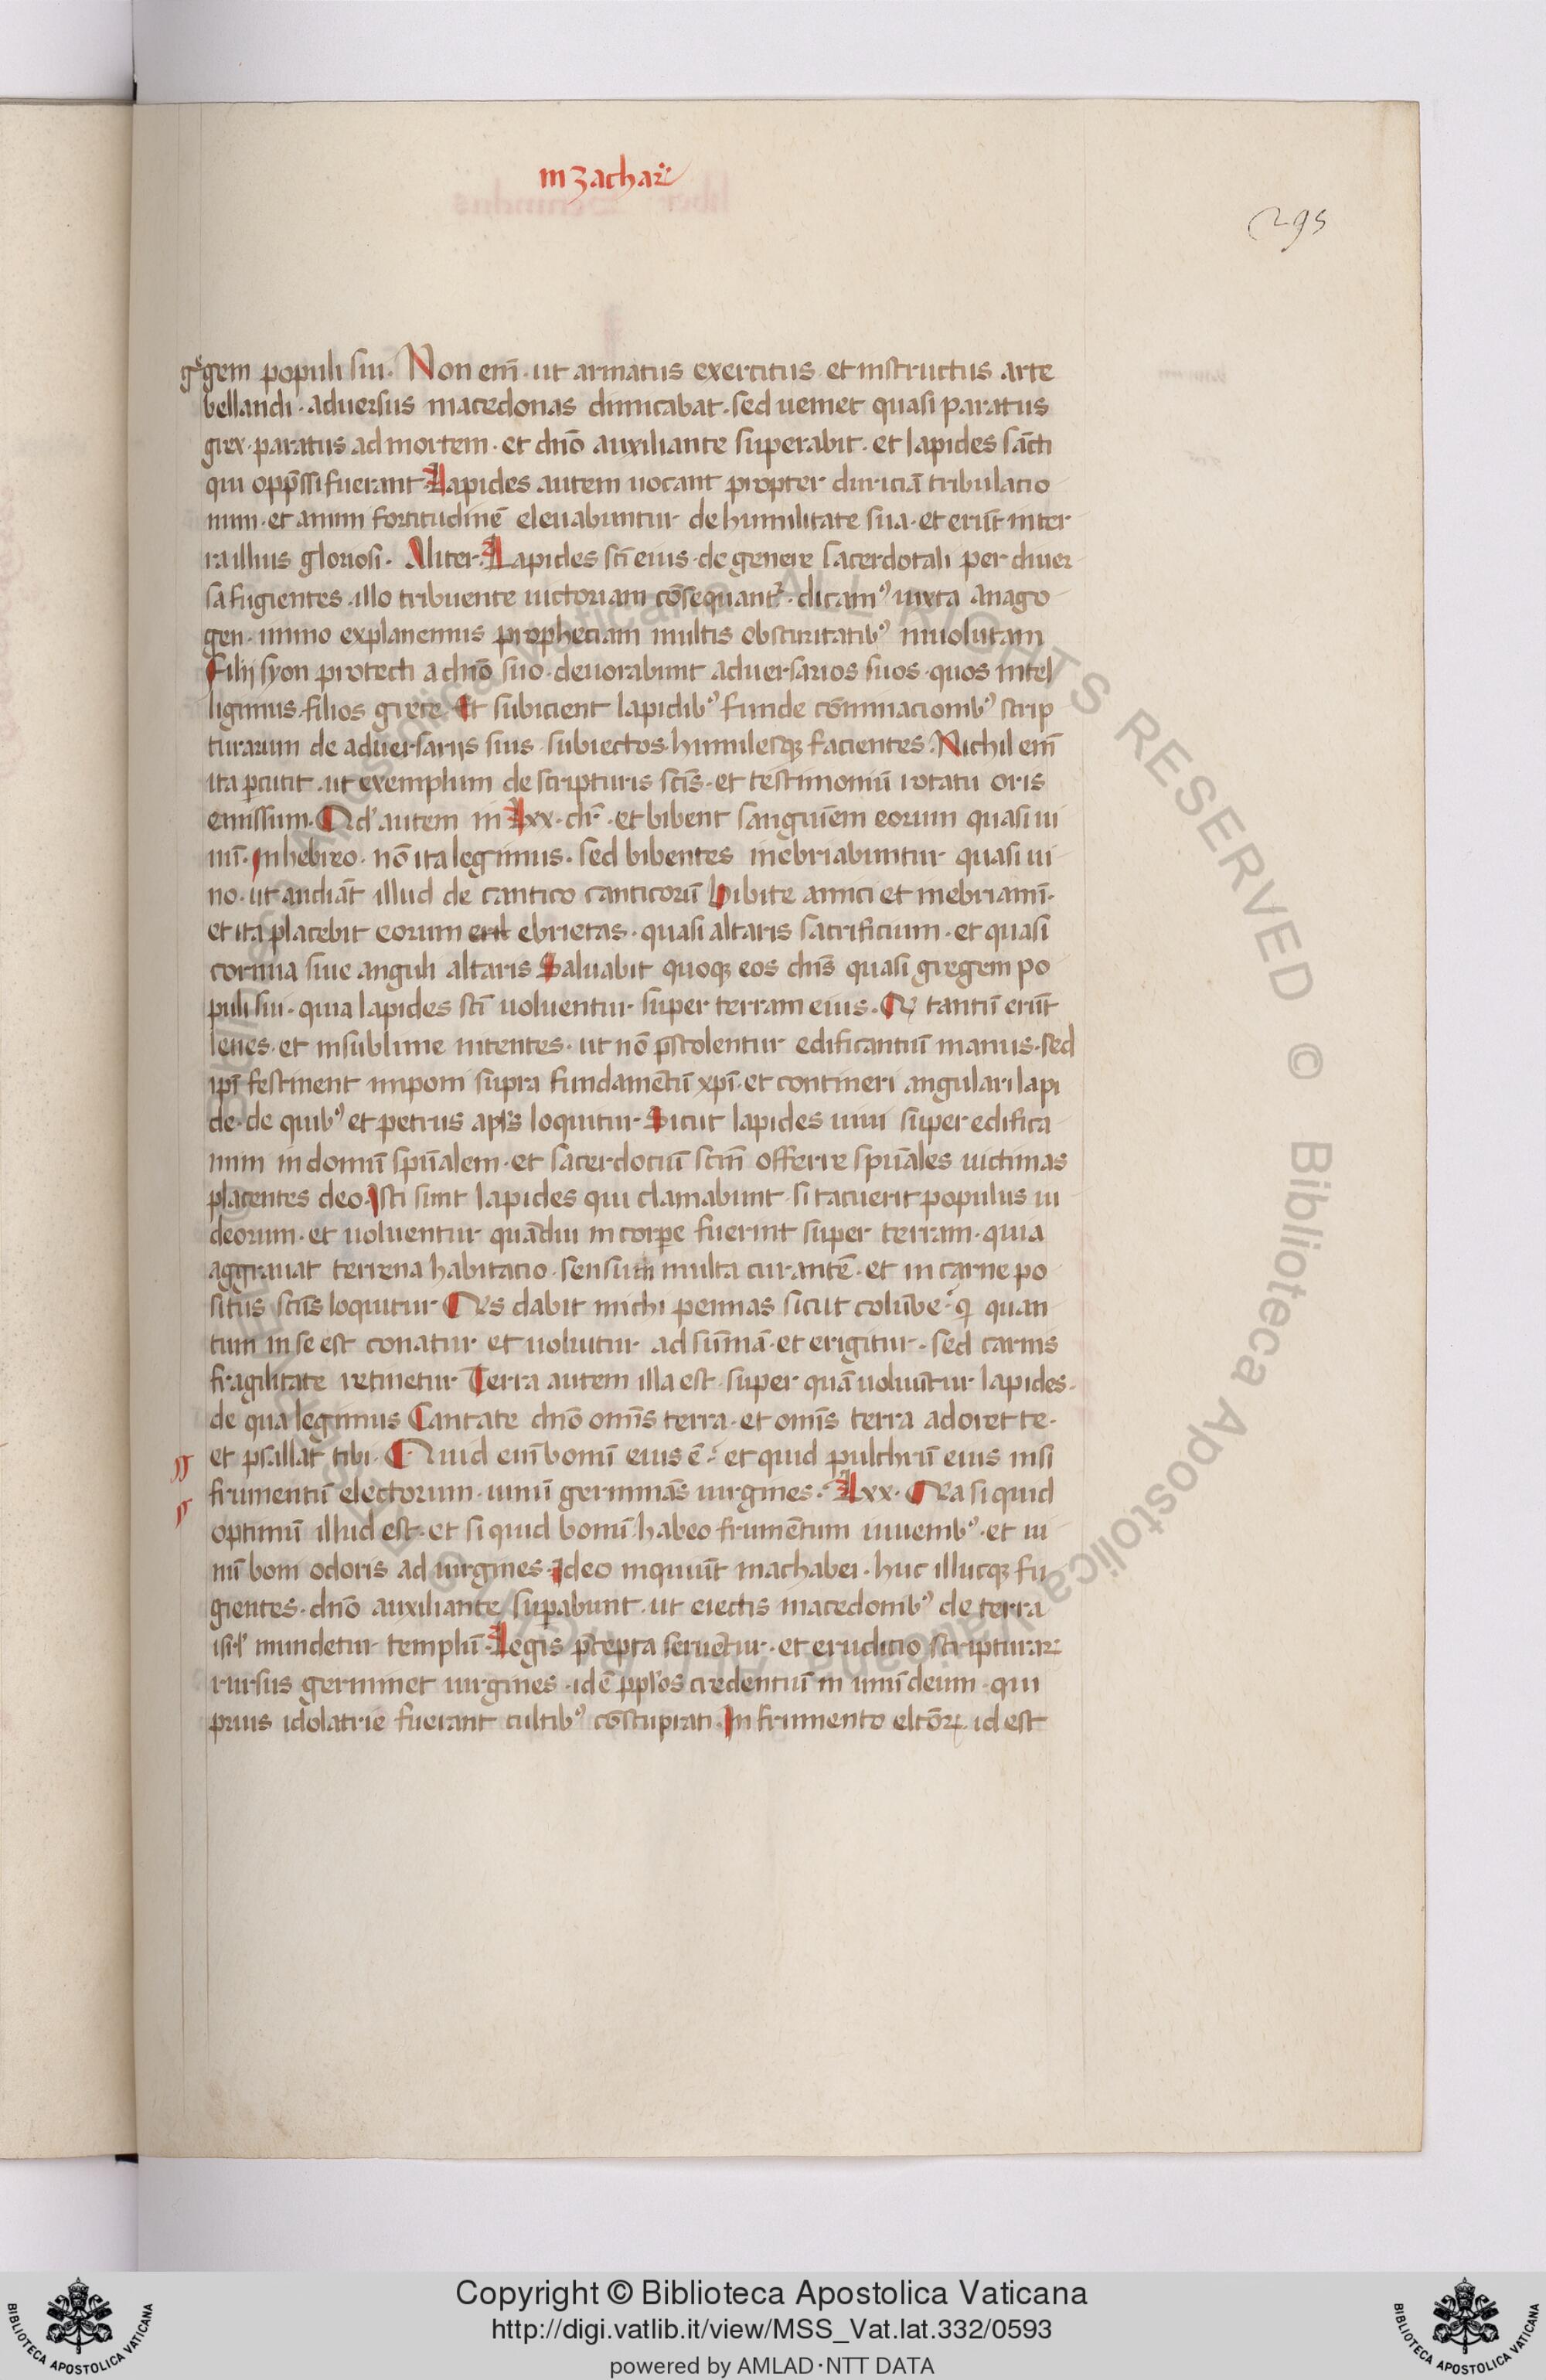 in zachar̄
295
gregem populi sui. Non em̄. ut armatus exercitus et instructus arte
bellandi. aduersus macedonas dimicabat. sed ueniet quasi paratus
grex. paratus ad mortem. et dn̄o auxiliante superabit. et lapides sāc̄ti
qui opp̄ssi fuerant. Lapides autem uocant propter duriciā tribulacio
num. et animi fortitudinē eleuabuntur de humilitate sua. et erūt in ter
ra illius gloriosi. Aliter. Lapides sc̄i eius. de genere sacerdotali per diuer
sa fugientes. illo tribuente uictoriam cōsequant᷑. dicam⁹ iuxta anago
gen. immo explanemus propheciam multis obscuritatib⁹ inuolutam
Filij syon protecti a dn̄o suo. deuorabunt aduersarios suos. quos intel
ligimus. filios grece. Et subicient lapidib⁹ funde cōminacionib⁹ scrip
turarum de aduersarijs suis. subiectos. humilesqꝫ facientes. Nichil em̄
ita ꝑcutit. ut exemplum de scripturis sc̄is. et testimoniū rotatu oris
emissum. Qd' autem in Lxx. dr̄. et bibent sanguīem eorum quasi ui
nū. In hebreo. nō ita legimus. sed bibentes inebriabuntur quasi ui
no. ut audiāt illud de cantico canticorū bibite amici et inebriamī.
et ita placebit eorum erit ebrietas. quasi altaris sacrificium. et quasi
cornua siue anguli altaris Saluabit quoqꝫ eos dn̄s quasi gregem po
puli sui. quia lapides sc̄i uoluentur super terram eius. Qi tantū erūt
leues. et in sublime nitentes. ut nō p̄stolentur edificantiū manus. sed
ip̄i festinent imponi supra fundamētū xp̄i. et contineri angulari lapi
de. de quib⁹ et petrus apl's loquitur. Sicut lapides uiui super edifica
mini in domū spūalem. et sacerdociū sc̄m̄ offerre spūales uictimas
placentes deo. Isti sunt lapides qui clamabunt. si tacuerit populus iu
deorum. et uoluentur quādiu in corꝑe fuerint super terram. quia
aggrauat terrena habitacio. sensum multa curantē. et in carne po
situs sc̄us loquitur Qis dabit michi pennas sicut colūbe. qi quan
tum in se est conatur et uoluitur ad sūmā. et erigitur. sed carnis
fragilitate retinetur Terra autem illa est. super quā uoluūtur lapides.
de qua legimus Cantate dn̄o om̄is terra. et om̄is terra adoret te.
et psallat tibi. Quid enī bonū eius ē. et quid pulchrū eius nisi
frumentū electorum. uinū germināś uirgines. Lxx. Qia si quid
optimū illud est. et si quid bonū habeo frumētum iuuenib⁹. et ui
nū boni odoris ad uirgines. Ideo inquiūt machabei. huc illucqꝫ fu
gientes. dn̄o auxiliante suꝑabunt. ut eiectis macedonib⁹ de terra
isrl' mundetur templū. Legis p̄cepta seruētur. et erudicio scripturaꝝ
rursus germinet uirgines. id ē ppl'os credentiū in unū deum. qui
prius idolatrie fuerant cultib⁹ cōstuprati. In frumento eltōꝝ. id est
Copyright © Biblioteca Apostolica Vaticana
http://digi.vatlib.it/view/MSS_Vat.lat.332/0593
powered by AMLAD·NTT DATA
BIBLIOTECA APOSTOLICA VATICANA
BIBLIOTECA APOSTOLICA VATICANA